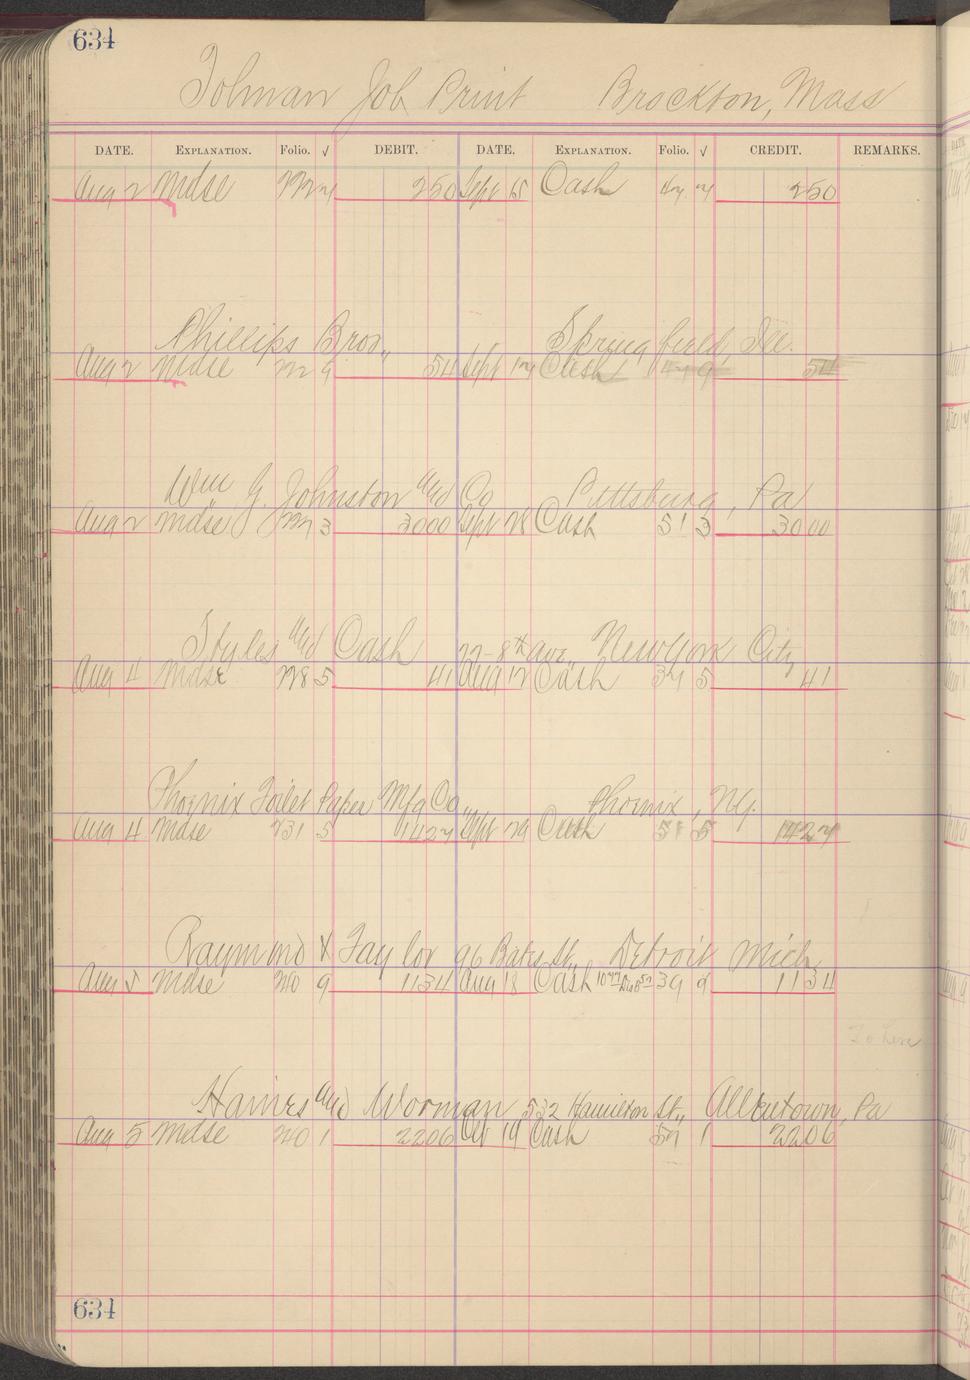 634
Tolman Job Print Brockton, Mass
DATE. EXPLANATION. Folio. √ DEBIT. DATE. EXPLANATION. Folio. √ CREDIT. REMARKS.
Aug 2 Mdse 222 4 250 Sept 15 Cash 47 4 250
Phillips Bros., Springfield, Ill.
Aug 2 Mdse 22 9 54 Sept 17 Cash 47 9 54
Wm G. Johnston and Co Pittsburg, Pa
Aug 2 Mdse 3 3000 Sept 28 Cash 51 3 3000
Styles and Cash 77-8th Ave, New York City
Aug 4 Mdse 228 5 41 Aug 12 Cash 37 5 41
Phoenix Toilet Paper Mfg Co., Phoenix, Ny.
Aug 4 Mdse 231 5 1427 Sept 29 Cash 51 5 1427
Raymond & Taylor 96 Bates St., Detroit Mich
Aug 5 Mdse 240 9 1134 Aug 18 Cash 39 9 1134
Haines and Worman 532 Hamilton St., Allentown, Pa
Aug 5 Mdse 240 1 2206 Oct 19 Cash 57 1 2206
634